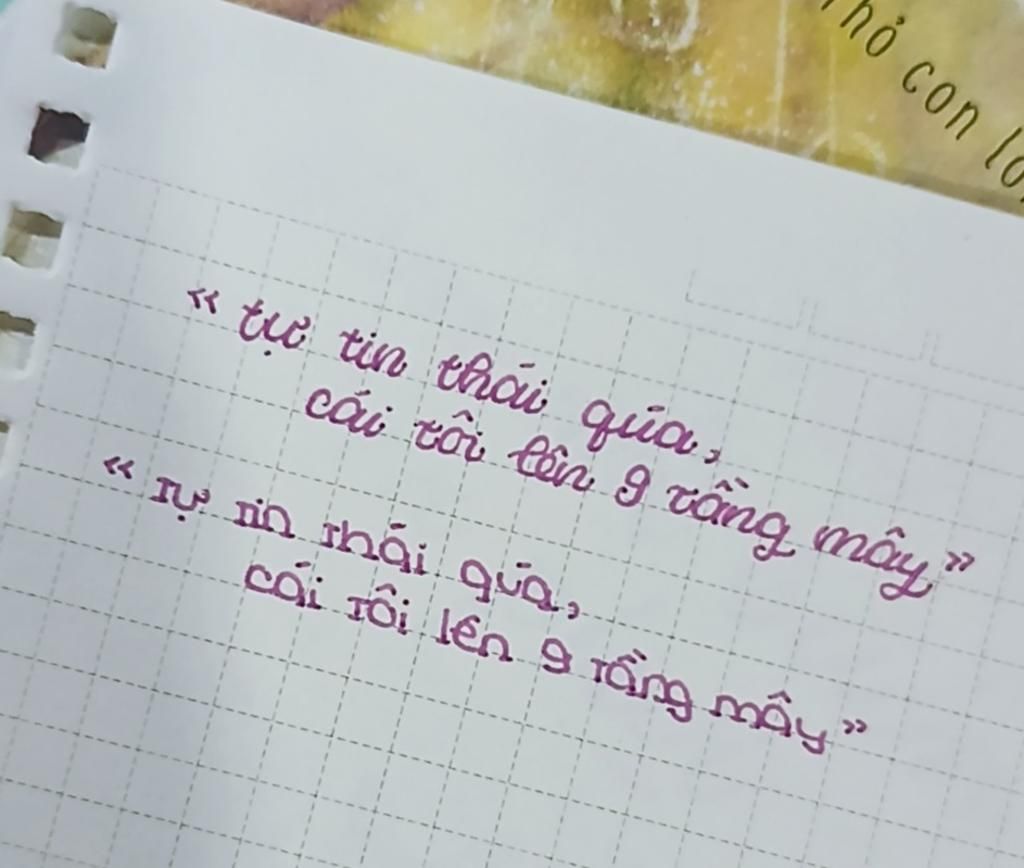 Thỏ con lo
“ tự tin thái qúa,
cái tôi lên 9 tầng mây”
“ Tự tin thái qúa,
cái tôi lên 9 tầng mây”